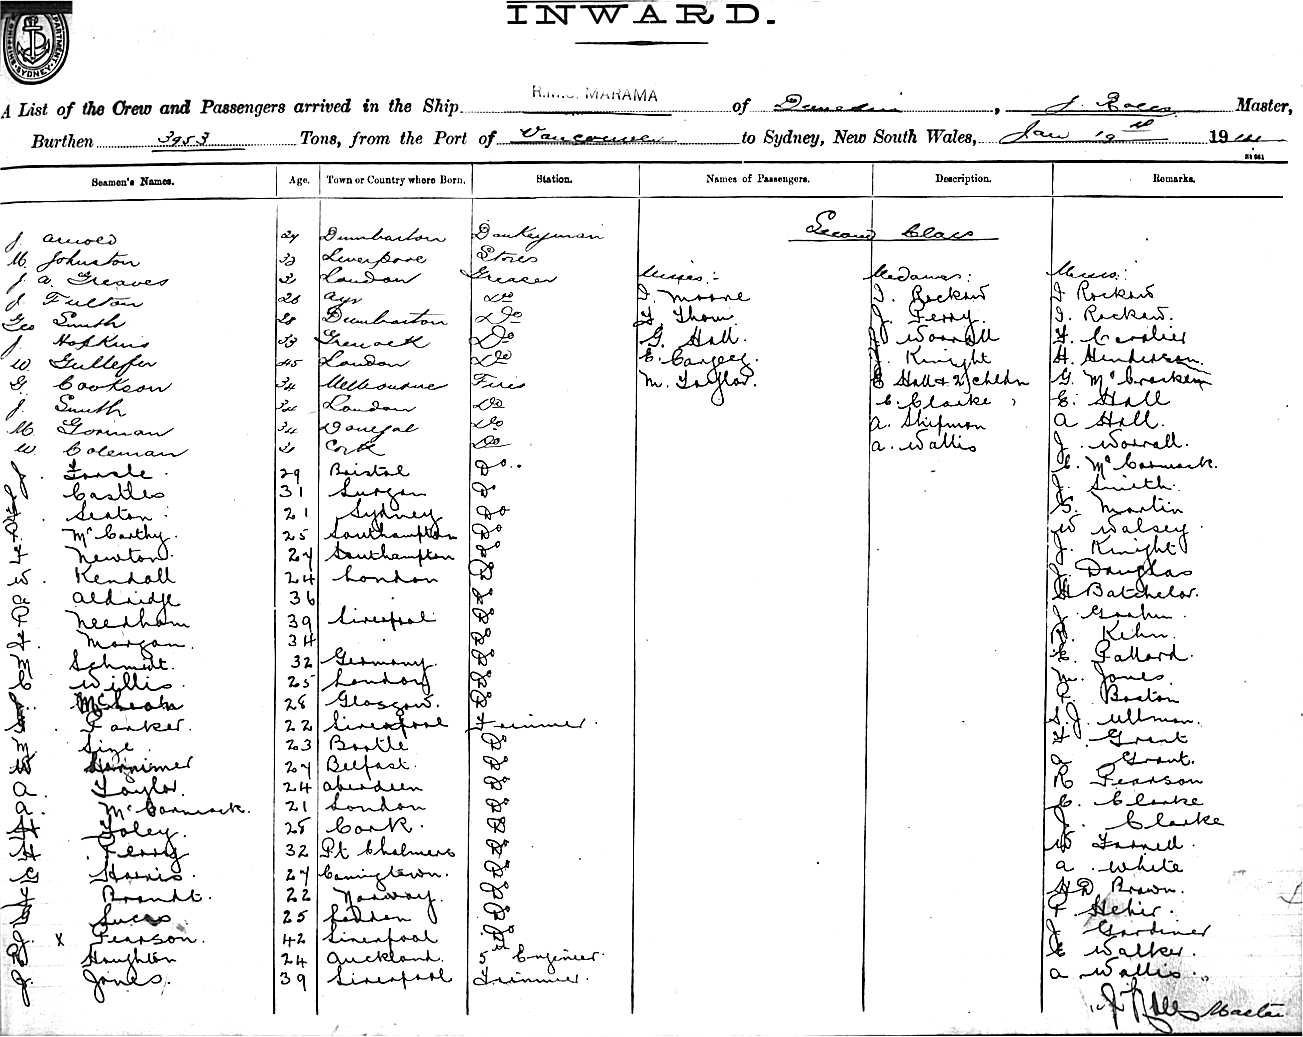 INWARD.
SHIPPING DEPARTMENT SYDNEY
A List of the Crew and Passengers arrived in the Ship R.M.S. MARAMA of Dunedin, J. Rolls Master,
Burthen 3953 Tons, from the Port of Vancouver to Sydney, New South Wales, Jan 19th 1914
Seamen's Names. Age. Town or Country where Born. Station. Names of Passengers. Description. Remarks.
Second Class
J. Arnold 27 Dumbarton Donkeyman
M. Johnston 33 Liverpool Stores
J. A. Greaves London Greaser Misses:- Mesdames: Messrs:
J. Fulton 28 Ayr Do I. Moore I. Rockow I Rockow
Geo Smith 28 Dumbarton Do Thom J. Perry. I. Rockow.
J. Hopkins 33 Greenock Do G. Hall. J. Worrall F. Cavalier
W. Gullefer 45 London Do E. Cargey. J. Knight H. Henderson
G. Cookson 34 Melbourne Fires M. Taylor. E Hall & 2 chldn G. McCracken
J. Smith 34 London Do C. Clarke E. Hall
M. Gorman 34 Donegal Do A. Shipman A Hall.
W Coleman Cork Do A. Wallis J. Worrall.
J. 29 Bristol Do. C. McCormack.
Castles 31 Do J. Smith.
Seaton 21 Sydney Do G. Martin
McCarthy. 25 Southampton Do W Walsey
Newton. 27 Southampton Do J. Knight
W. Kendall 24 London Do J. Douglas
A Aldridge 36 Do H Batchelor.
Needham 39 Liverpool Do J. Graham
Morgan. 34 Do Kehn.
M Schmidt. 32 Germany. Do E. Pallard.
C Willis. 25 London Do M. Jones
28 Glasgow. Do Boston
Parker. 22 Liverpool Trimmer. S. J. Ullman.
M Size. 23 Bootle Do F. Grant
W 27 Belfast. Do A Grant.
A. Taylor. 24 Aberdeen Do R Pearson
A. McCormack. 21 London Do C. Clarke
H Foley. 28 Cork. Do J. Clarke
H. Perry 32 Pt Chalmers Do W Farnell.
G Harris. 27 Do A White
Brandt. 22 Norway. Do H D Brown.
25 Do P Hehir.
J. x Pearson. 42 Liverpool Do J Gardiner
Houghton 24 Auckland. 5th Engineer. E Walker.
J. Jones. 39 Liverpool Trimmer. A Wallis.
J Rolls Master